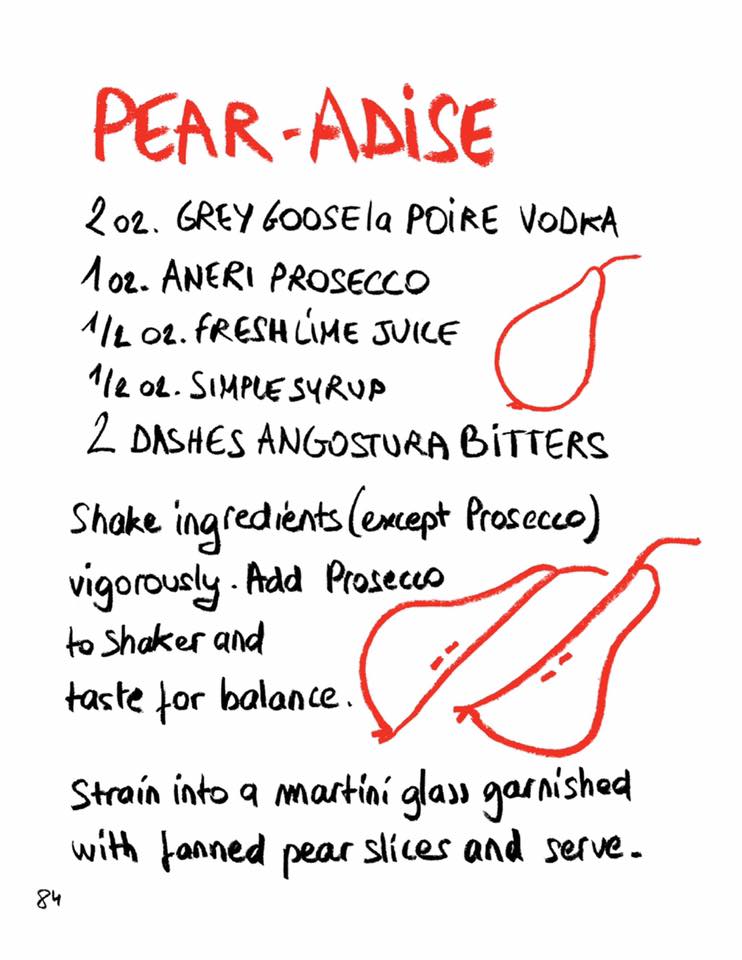 PEAR-ADiSE
2 oz. GREY GOOSE la POiRE VODKA
1 oz. ANERI PROSECCO
1/2 oz. fRESH LiME JUiCE
1/2 oz. SIMPLE SYRUP
2 DASHES ANGOSTURA BiTTERS
Shake ingredients (except Prosecco)
vigorously. Add Prosecco
to Shaker and
taste for balance.
Strain into a martini glass garnished
with fanned pear slices and serve.
84